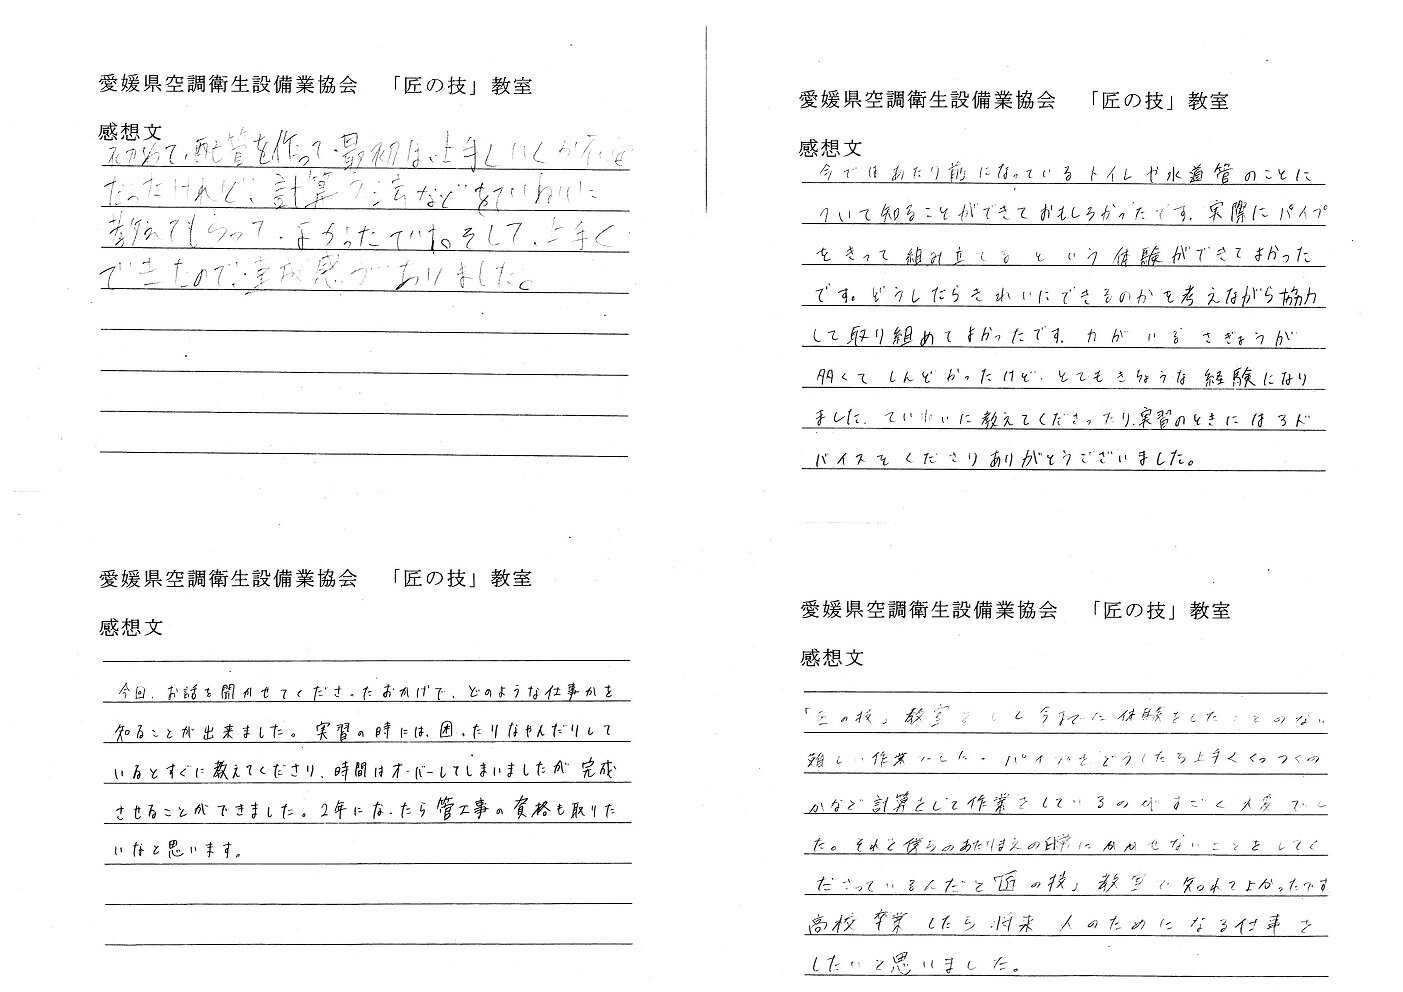 愛媛県空調衛生設備業協会 「匠の技」教室
感想文
初めて、配管を作って、最初は、上手くいくか不安
だったけれど、計算方法などもていねいに
教えてもらって、よかったです。そして、上手く
できたので、達成感がありました。
愛媛県空調衛生設備業協会 「匠の技」教室
感想文
今ではあたり前になっているトイレや水道管のことに
ついて知ることができておもしろかったです。実際にパイプ
をきって組み立てるという体験ができてよかった
です。どうしたらきれいにできるのかを考えながら協力
して取り組めてよかったです。力がいるさぎょうが
多くてしんどかったけど、とてもきちょうな経験になり
ました。ていねいに教えてくださったり、実習のときにはアド
バイスをくださりありがとうございました。
愛媛県空調衛生設備業協会 「匠の技」教室
感想文
今回、お話を聞かせてくださったおかげで、どのような仕事かを
知ることが出来ました。実習の時には、困ったりなやんだりして
いるとすぐに教えてくださり、時間はオーバーしてしまいましたが完成
させることができました。2年になったら管工事の資格も取りた
いなと思います。
愛媛県空調衛生設備業協会 「匠の技」教室
感想文
「匠の技」教室をして今までに体験をしたことのない
難しい作業でした。パイプをどうしたら上手くくっつくの
かなど計算をして作業をしているのがすごく大変でし
た。それを僕らのあたりまえの日常にかかせないことをしてく
ださっているんだと「匠の技」教室で知れてよかったです
高校卒業したら将来人のためになる仕事を
したいと思いました。